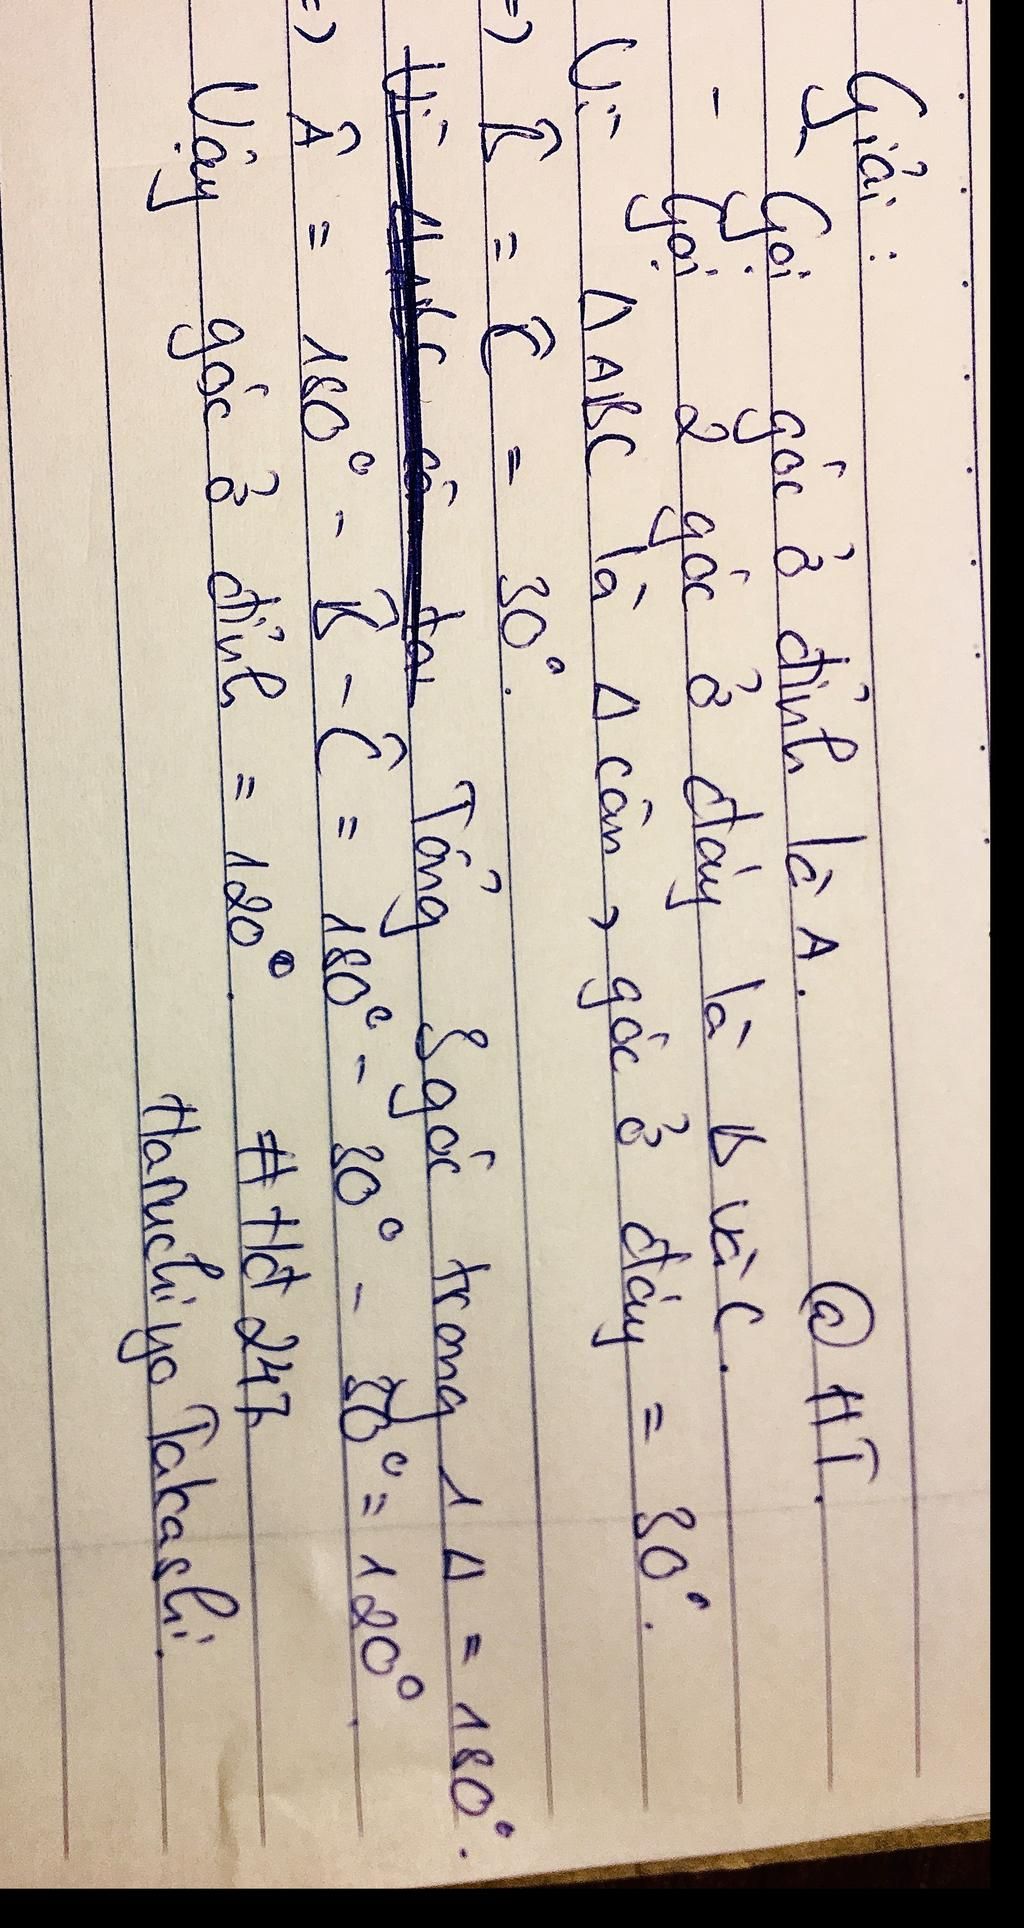 Giải :
- Gọi góc ở đỉnh là A. @ HT.
Gọi 2 góc ở đáy là B và C.
Vì Δ ABC là Δ cân, góc ở đáy = 30°.
=> B̂ = Ĉ = 30°.
Tổng 3 góc trong 1 Δ = 180°.
=> Â = 180° - B̂ - Ĉ = 180° - 30° - 30° = 120°.
Vậy góc ở đỉnh = 120°. # Hđ 247
Haruchiyo Takashi.